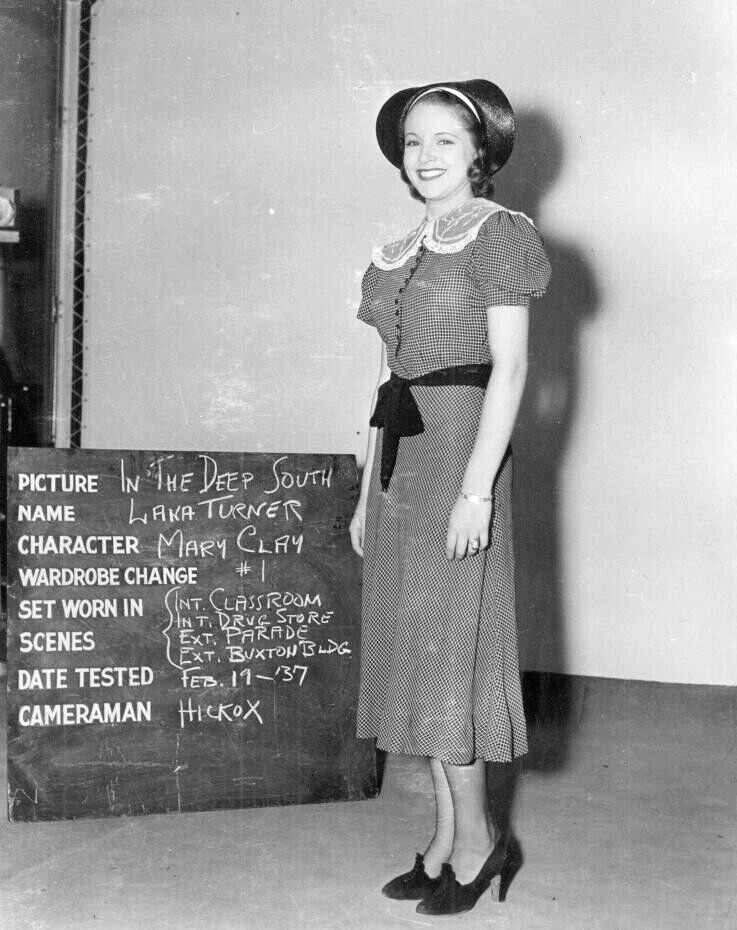 PICTURE IN THE DEEP SOUTH
NAME LANA TURNER
CHARACTER MARY CLAY
WARDROBE CHANGE #1
SET WORN IN INT. CLASSROOM
INT. DRUG STORE
SCENES EXT. PARADE
EXT. BUXTON BLDG
DATE TESTED FEB. 19-'37
CAMERAMAN HICKOX